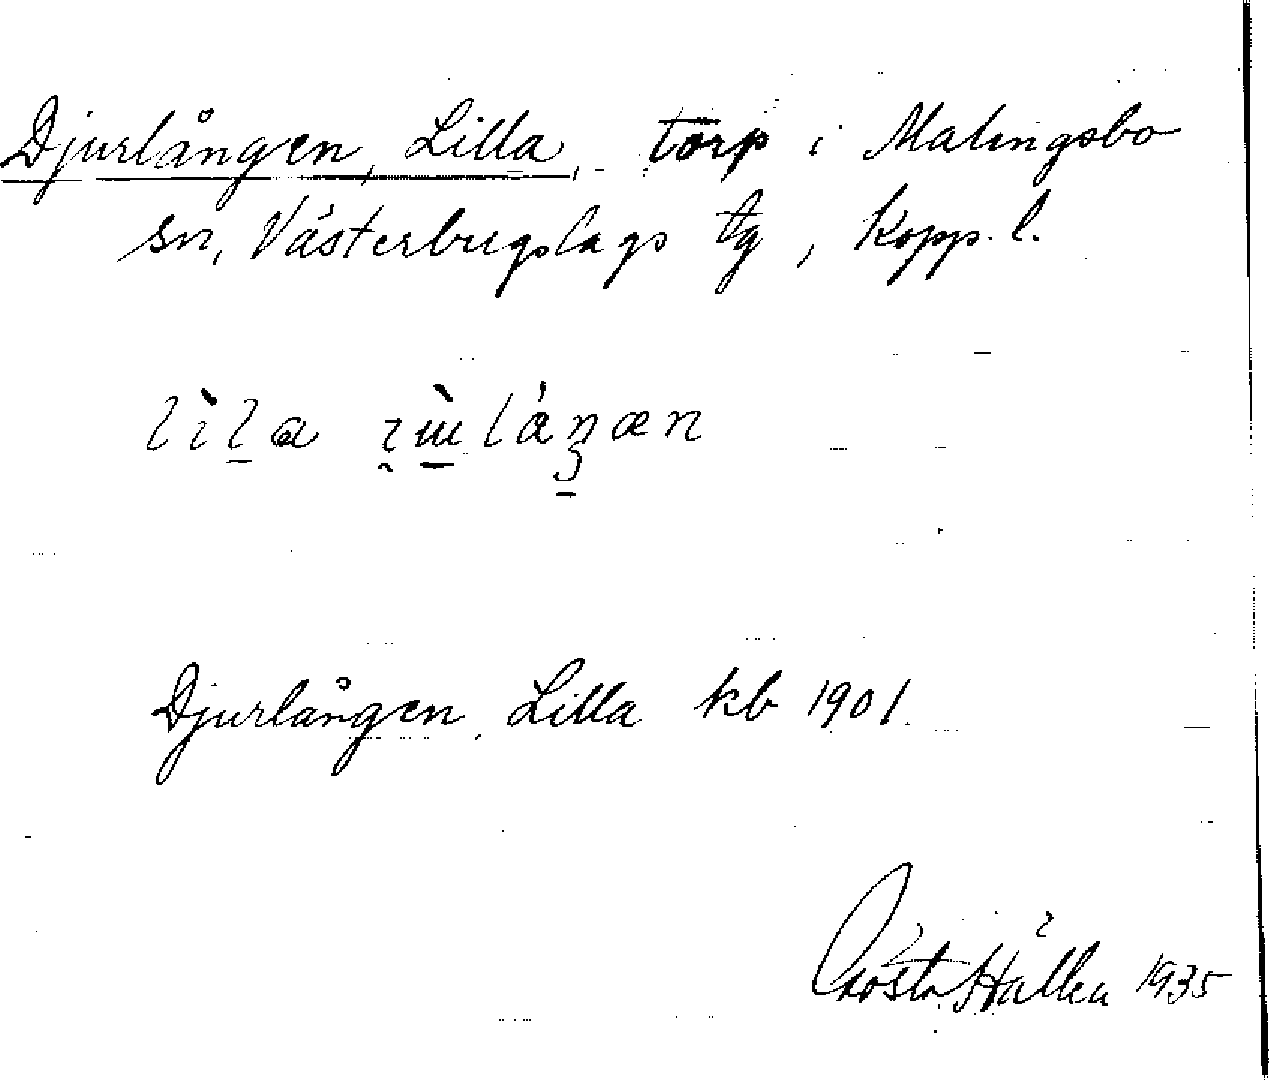 Djurlången, Lilla, torp i Malingsbo
sn, Västerbergslags tg, Kopp. l.
Djurlången, Lilla kb 1901.
Gösta Hålla 1935